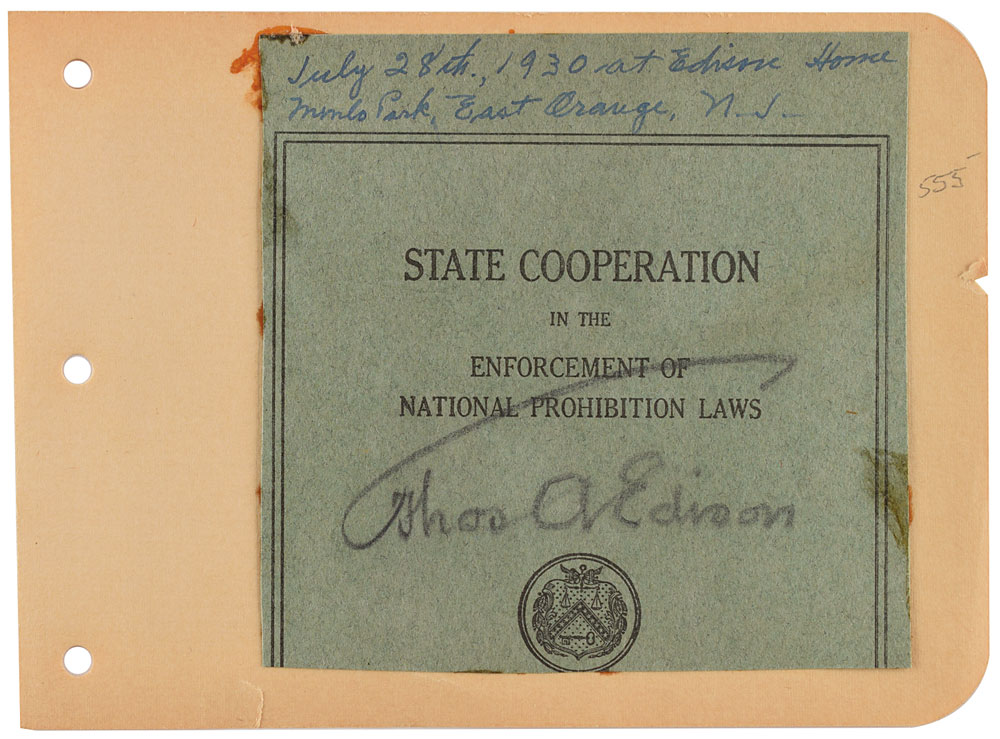 July 28th., 1930 at Edison Home
Menlo Park, East Orange, N.J.
555
STATE COOPERATION
IN THE
ENFORCEMENT OF
NATIONAL PROHIBITION LAWS
Thos A Edison